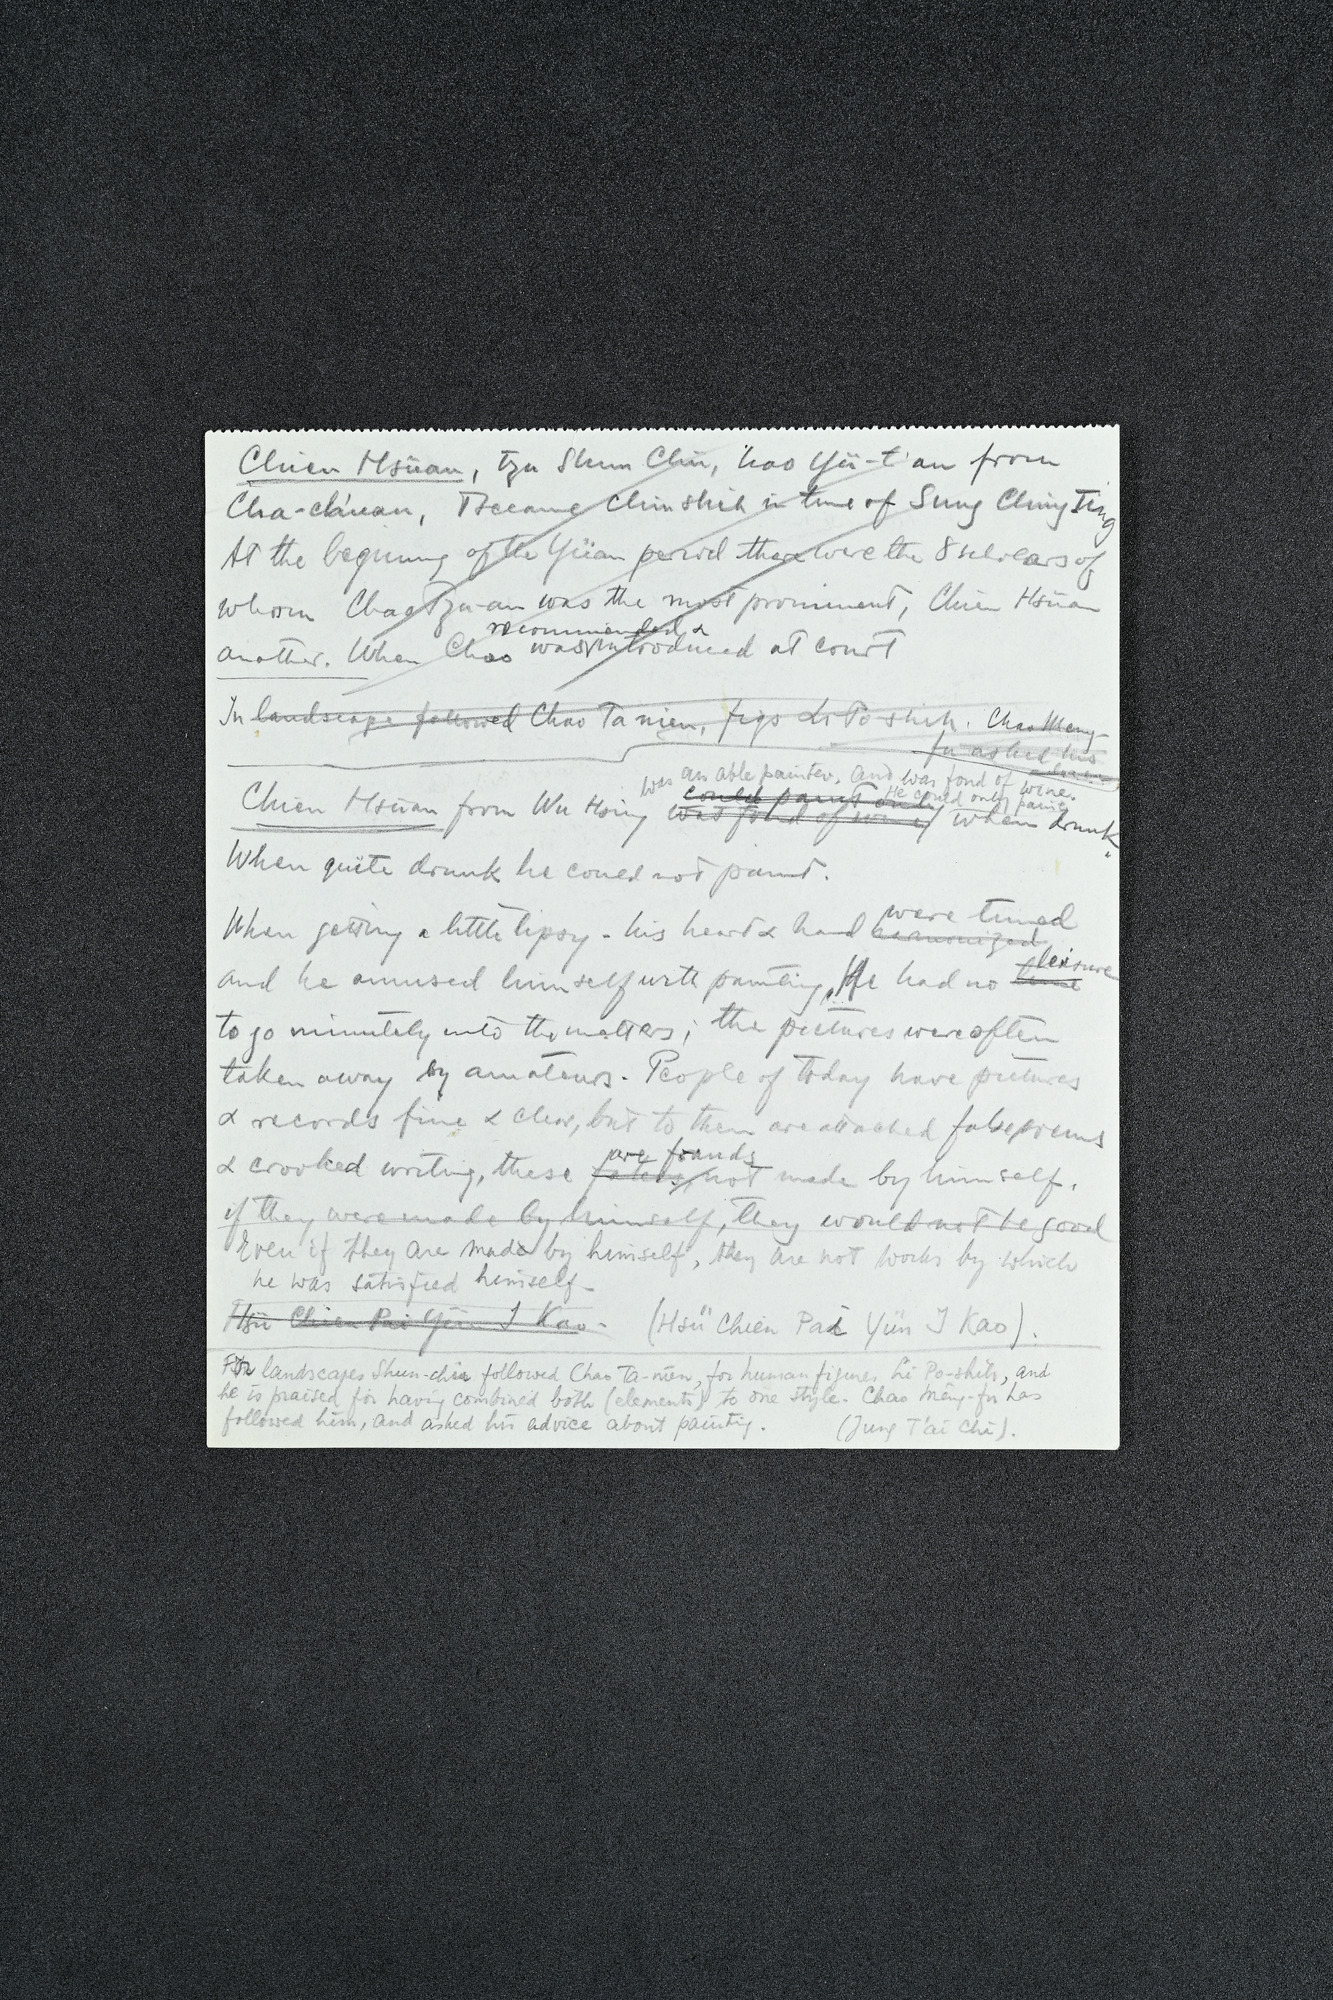 Chien Hsüan, tzu Shun Chü, hao Yü-t'an from
Cha-ch'uan, Became Chin shih in time of Sung Ching Ting
At the begining of the Yüan period there were the 8 scholars of
whom Chao Tzu-an was the most prominent, Chien Hsüan
recommended &
another. When Chao was introduced at court
In landscape followed Chao Ta nien, figs Li Po-shih. Chao Meng-
fu asked his
was an able painter, and was fond of wine.
could paint only He could only paint
Chien Hsüan from Wu Hsing was fond of wine when drunk.
When quite drunk he could not paint.
were tuned
When getting a little tipsy - his heart & hand harmonized
leisure
and he amused himself with painting. He had no time
to go minutely into the matters; the pictures were often
taken away by amateurs. People of today have pictures
& records fine & clear, but to them are attached false poems
are frauds
& crooked writing, these not made by himself.
if they were made by himself, they would not be good
Even if they are made by himself, they are not works by which
he was satisfied himself-
Hsü Chien Pai Yün I Kao - (Hsü Chien Pai Yün I Kao).
For landscapes Shun-chü followed Chao Ta-nien, for human figures Li Po-shih, and
he is praised for having combined both (elements) to one style. Chao Meng-fu has
followed him, and asked his advice about painting. (Jung T'ai Chi).